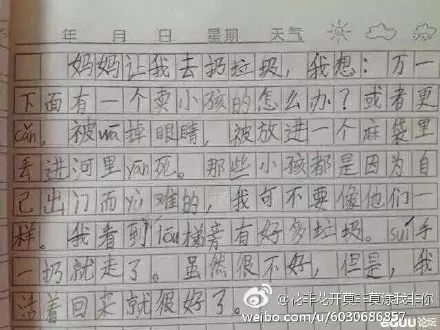 年 月 日 星期 天气
妈妈让我去扔垃圾，我想：万一
下面有一个卖小孩的怎么办？或者更
cǎn，被wā掉眼睛，被放进一个麻袋里
丢进河里yān死。那些小孩都是因为自
己出门而yù难的，我可不要像他们一
样。我看到lóu梯旁有好多垃圾。suí手
一扔就走了。虽然很不好，但是，我
活着回来就很好了。
weibo.com/u/6030686857
论坛